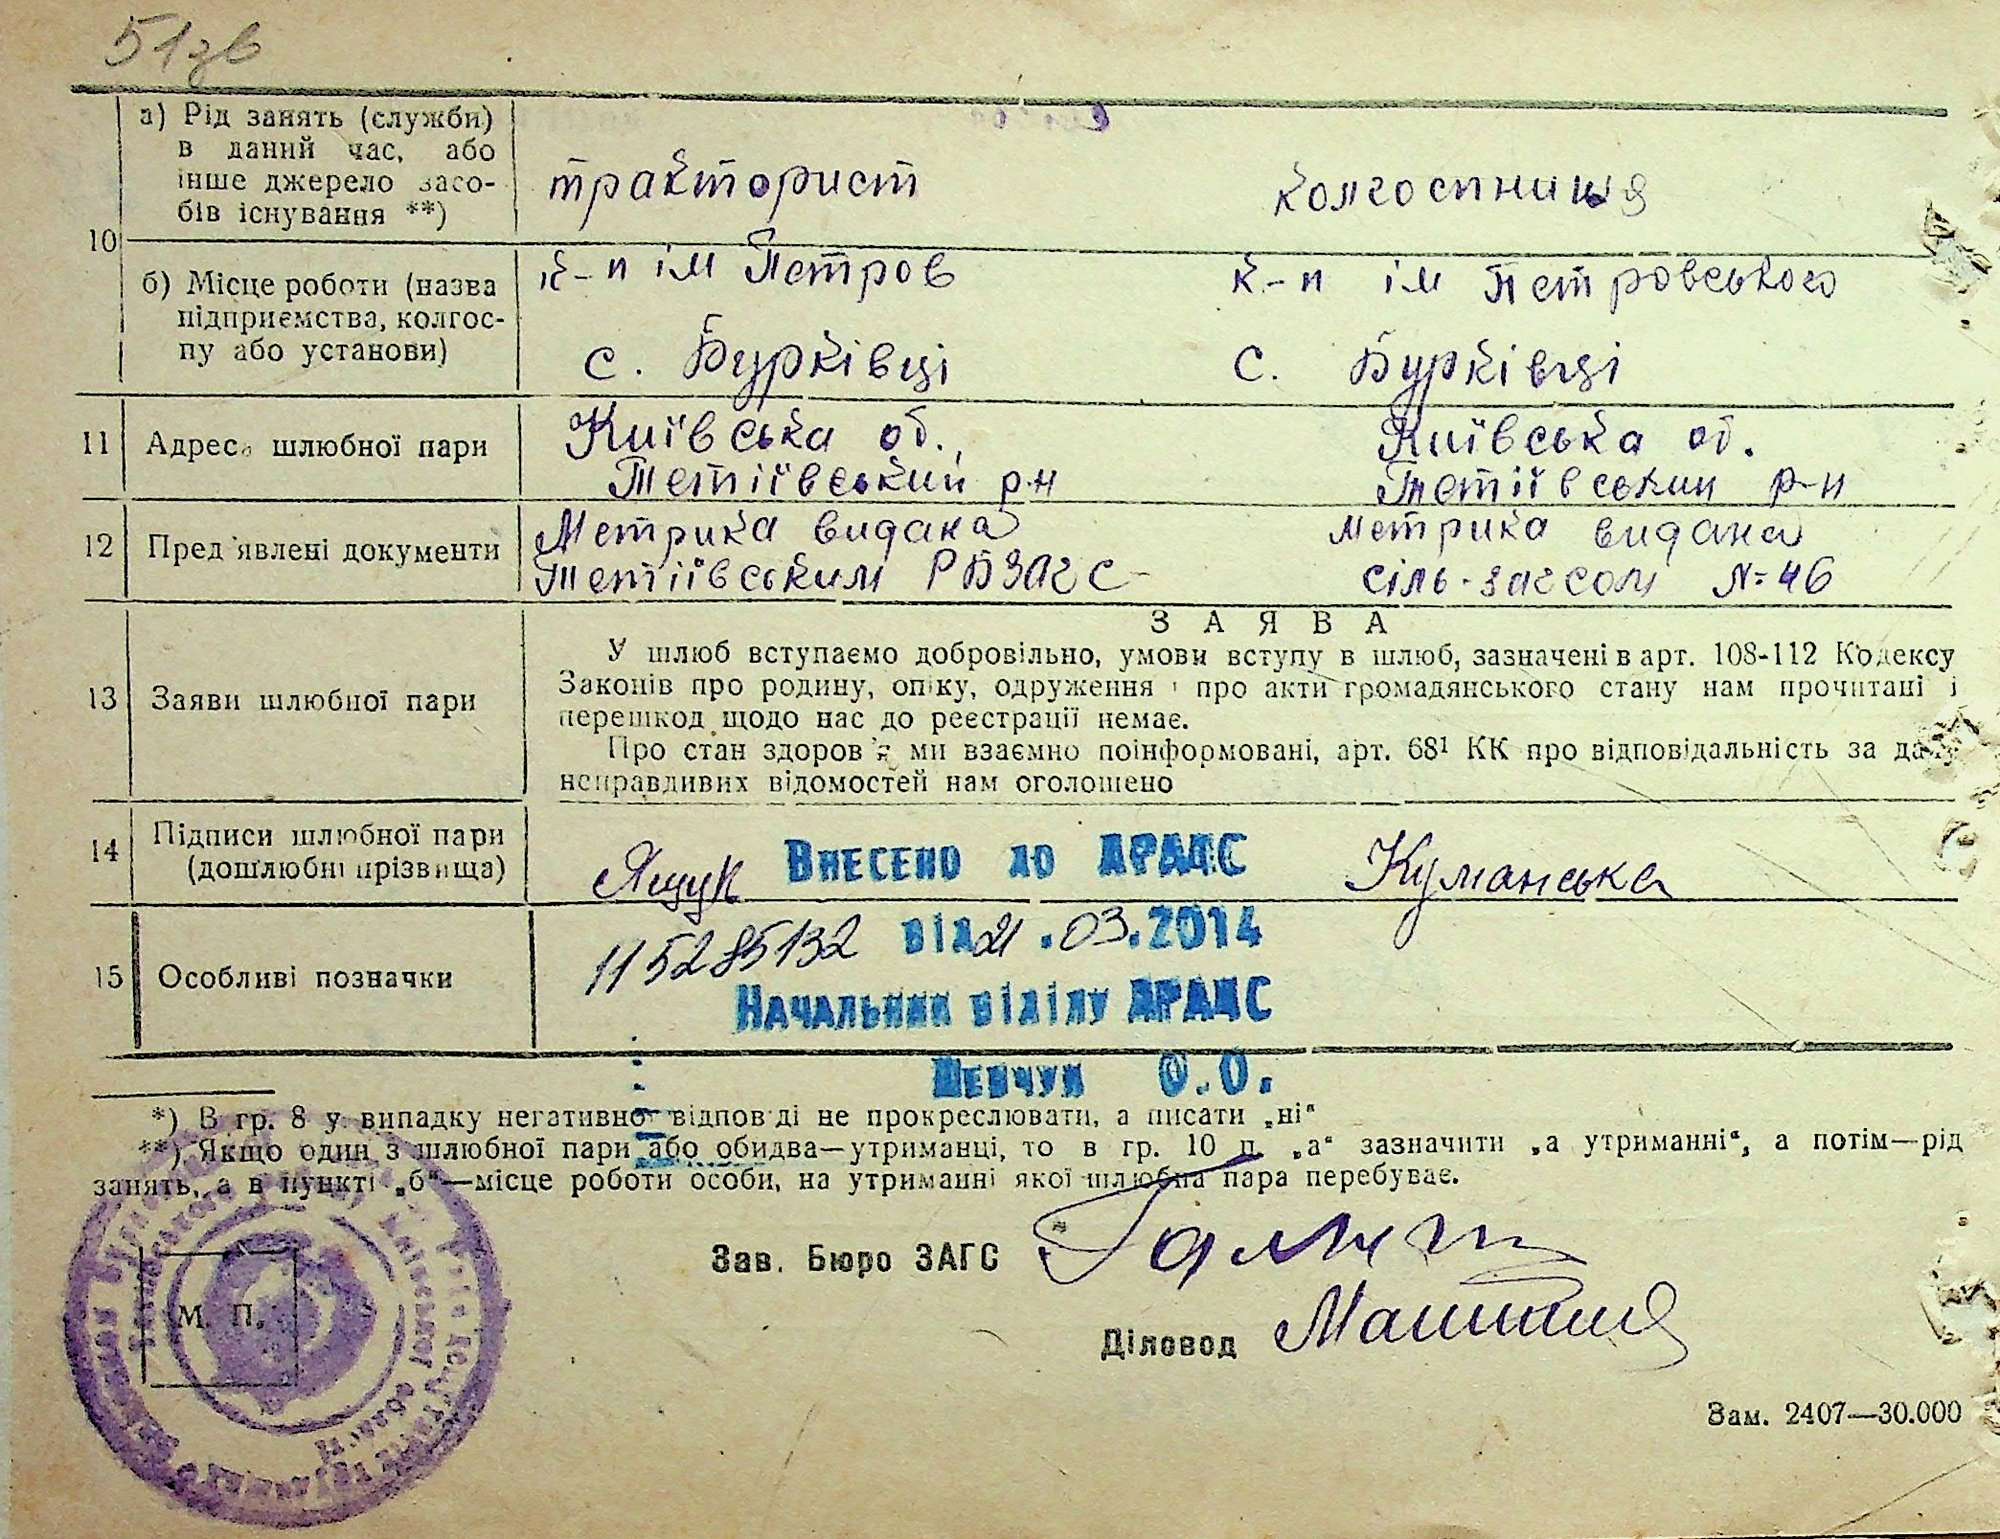 51зв
10
а) Рід занять (служби) в даний час, або інше джерело засо-
бів існування **)
тракторист
колгоспниця
б) Місце роботи (назва
підприємства, колгос-
пу або установи)
к-п ім Петров
с. Бурківці
к-п ім Петровського
с. Бурківці
11 Адреса шлюбної пари
Київська об.,
Тетіївський р-н
Київська об.
Тетіївський р-н
12 Пред'явлені документи
Метрика видана
Тетіївським РБЗАГС
метрика видана
сіль-загсом №46
13 Заяви шлюбної пари
ЗАЯВА
У шлюб вступаємо добровільно, умови вступу в шлюб, зазначені в арт. 108-112 Кодексу
Законів про родину, опіку, одруження і про акти громадянського стану нам прочитані і
перешкод щодо нас до реєстрації немає.
Про стан здоров'я ми взаємно поінформовані, арт. 68¹ КК про відповідальність за дачу
неправдивих відомостей нам оголошено
14 Підписи шлюбної пари
(дошлюбні прізвища)
Ящук
Внесено до ДРАЦС
Куманська
15 Особливі позначки
115285132
від 21.03.2014
Начальник відділу ДРАЦС
Шевчук О.О.
*) В гр. 8 у випадку негативної відповіді не прокреслювати, а писати „ні“
**) Якщо один з шлюбної пари або обидва—утриманці, то в гр. 10 п. „а“ зазначити „а утриманні“, а потім—рід
занять, а в пункті „б“—місце роботи особи, на утриманні якої шлюбна пара перебуває.
Зав. Бюро ЗАГС
Діловод
М. П.
Київської області
Зам. 2407—30.000